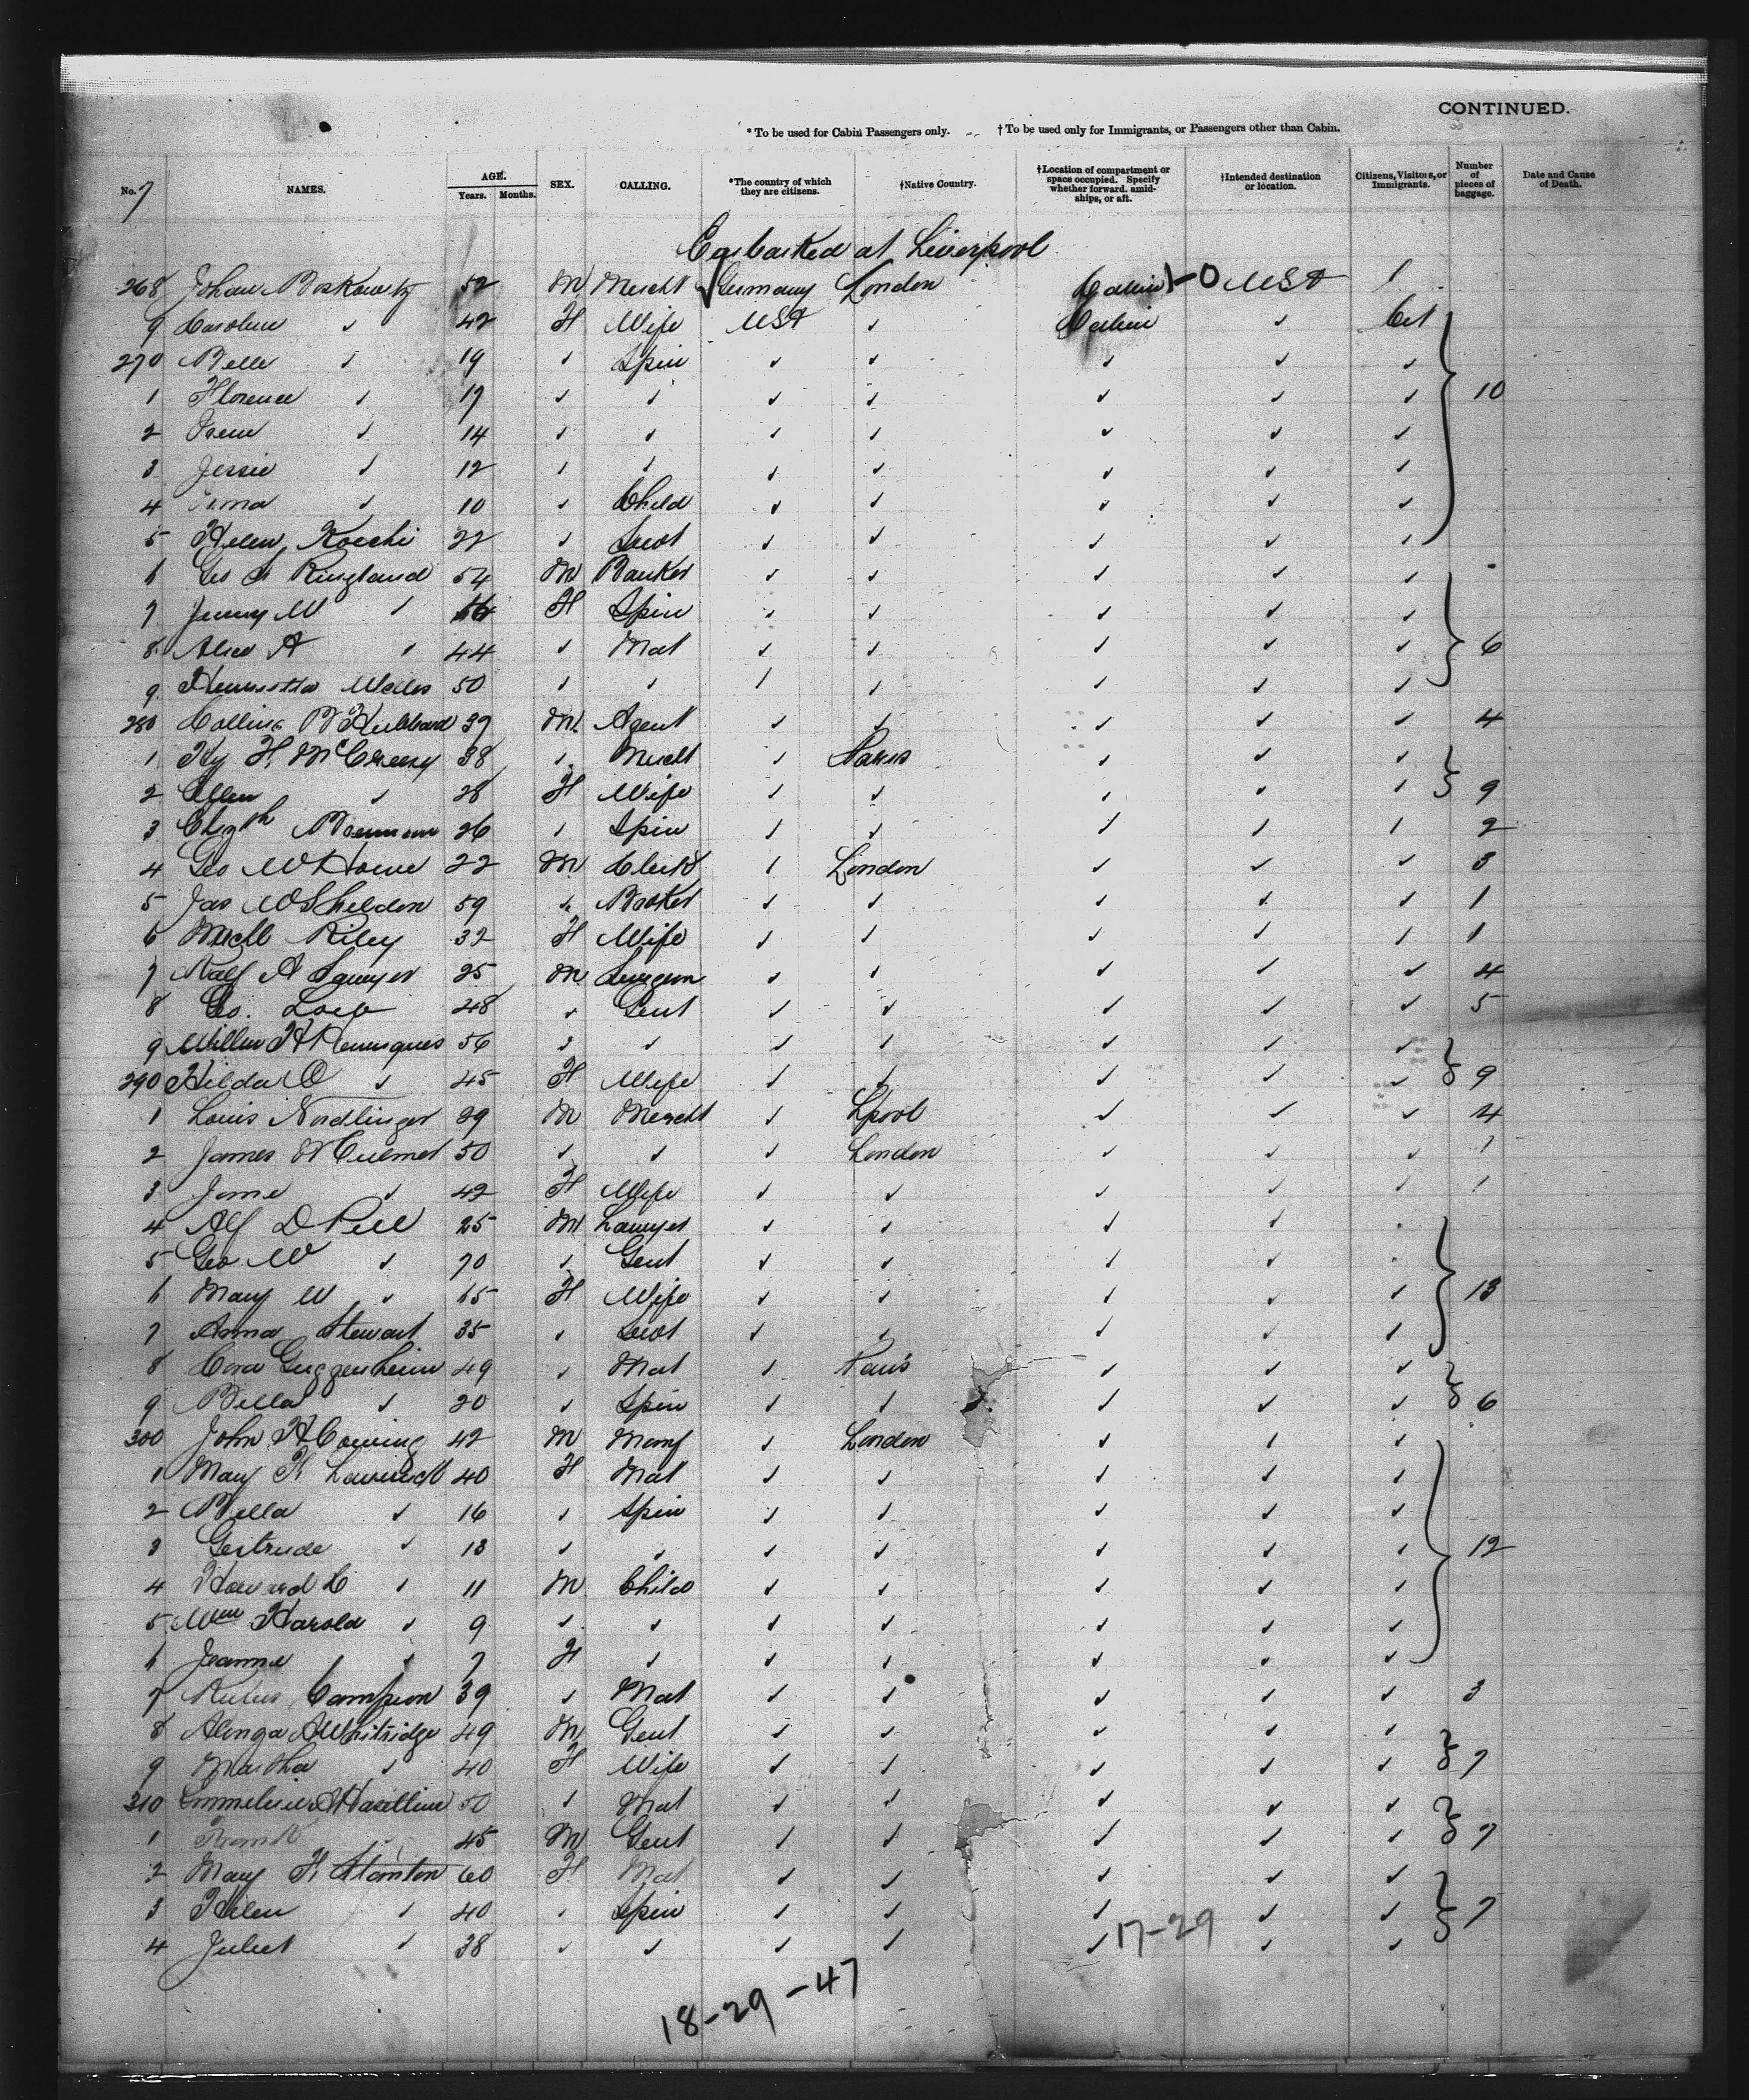 CONTINUED.
* To be used for Cabin Passengers only. † To be used only for Immigrants, or Passengers other than Cabin.
No. 7 NAMES. AGE. Years. Months. SEX. CALLING. *The country of which they are citizens. †Native Country. †Location of compartment or space occupied. Specify whether forward, amidships, or aft. †Intended destination or location. Citizens, Visitors, or Immigrants. Number of pieces of baggage. Date and Cause of Death.
Embarked at Liverpool
268 Johan Boskowitz 52 M Mercht √ Germany London Cabin - 0 USA 1
9 Caroline ✓ 42 F Wife USA ✓ Cabin ✓ Cit
270 Belle ✓ 19 ✓ Spin ✓ ✓ ✓ ✓ ✓
1 Florence ✓ 17 ✓ ✓ ✓ ✓ ✓ ✓ ✓ 10
2 Irene ✓ 14 ✓ ✓ ✓ ✓ ✓ ✓ ✓
3 Jessie ✓ 12 ✓ ✓ ✓ ✓ ✓ ✓ ✓
4 ✓ 10 ✓ Child ✓ ✓ ✓ ✓ ✓
5 Helen 22 ✓ ✓ ✓ ✓ ✓ ✓
6 Geo Ringland 54 M Banker ✓ ✓ ✓ ✓ ✓
7 Jenny M ✓ F Spin ✓ ✓ ✓ ✓ ✓
8 Alice A ✓ 44 ✓ Mat ✓ ✓ ✓ ✓ ✓ 6
9 Henrietta Welles 50 ✓ ✓ ✓ ✓ ✓ ✓ ✓
280 Collins B Hubbard 39 M Agent ✓ ✓ ✓ ✓ ✓ 4
1 Hy F. McCreery 38 ✓ Mercht ✓ Paris ✓ ✓ ✓
2 Ellen ✓ 28 F Wife ✓ ✓ ✓ ✓ ✓ 9
3 Elizth 26 ✓ Spin ✓ ✓ ✓ ✓ ✓ 2
4 Geo W Howe 22 M Clerk ✓ London ✓ ✓ ✓ 3
5 Jas W Sheldon 59 ✓ Broker ✓ ✓ ✓ ✓ ✓ 1
6 Riley 32 F Wife ✓ ✓ ✓ ✓ ✓ 1
7 A Sawyer 25 M Surgeon ✓ ✓ ✓ ✓ ✓ 4
8 Geo. Loeb 48 ✓ Gent ✓ ✓ ✓ ✓ ✓ 5
9 Henriques 56 ✓ ✓ ✓ ✓ ✓ ✓ ✓
290 Hilda O ✓ 45 F Wife ✓ ✓ ✓ ✓ ✓ 9
1 Louis Nordlinger 29 M Mercht ✓ Lpool ✓ ✓ ✓ 4
2 James 50 ✓ ✓ ✓ London ✓ ✓ ✓ 1
3 Jane ✓ 42 F Wife ✓ ✓ ✓ ✓ ✓ 1
4 Alf D Pell 25 M Lawyer ✓ ✓ ✓ ✓
5 Geo W ✓ 70 ✓ Gent ✓ ✓ ✓ ✓
6 Mary W ✓ 65 F Wife ✓ ✓ ✓ ✓ ✓ 13
7 Anna Stewart 35 ✓ ✓ ✓ ✓ ✓ ✓
8 Cora Guggenheim 49 ✓ Mat ✓ Paris ✓ ✓ ✓
9 Bella ✓ 20 ✓ Spin ✓ ✓ ✓ ✓ ✓ 6
300 John H Cowing 42 M Manf ✓ London ✓ ✓ ✓
1 Mary K 40 F Mat ✓ ✓ ✓ ✓ ✓
2 Bella ✓ 16 ✓ Spin ✓ ✓ ✓ ✓ ✓
3 Gertrude ✓ 13 ✓ ✓ ✓ ✓ ✓ ✓ ✓ 12
4 Howard C ✓ 11 M Child ✓ ✓ ✓ ✓ ✓
5 Wm Harold ✓ 9 ✓ ✓ ✓ ✓ ✓ ✓ ✓
6 Jeanne ✓ 7 F ✓ ✓ ✓ ✓ ✓ ✓
7 Campion 39 ✓ Mat ✓ ✓ ✓ ✓ ✓ 3
8 Alonza A Whitridge 49 M Gent ✓ ✓ ✓ ✓ ✓
9 Martha ✓ 40 F Wife ✓ ✓ ✓ ✓ ✓ 7
310 Emmeline Haseltine 50 ✓ Mat ✓ ✓ ✓ ✓ ✓
1 Frank ✓ 45 M Gent ✓ ✓ ✓ ✓ ✓ 7
2 Mary K Stanton 60 F Mat ✓ ✓ ✓ ✓ ✓
3 Helen ✓ 40 ✓ Spin ✓ ✓ ✓ ✓ ✓ 7
4 Juliet ✓ 38 ✓ ✓ ✓ ✓ ✓ 17-29 ✓ ✓
18-29-47